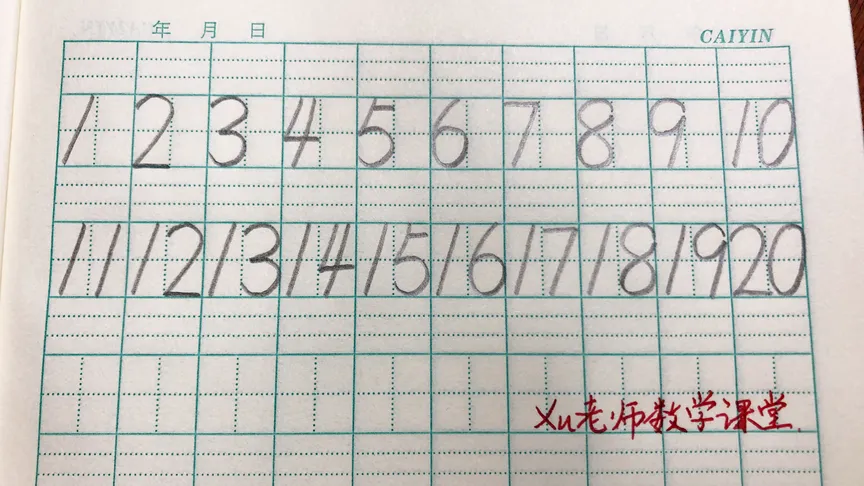 年 月 日 CAIYIN
1 2 3 4 5 6 7 8 9 10
11 12 13 14 15 16 17 18 19 20
Xu老师数学课堂